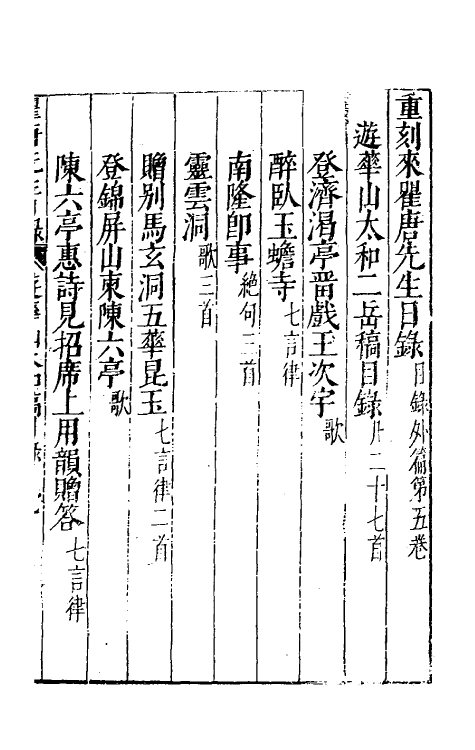 重刻來瞿唐先生日錄 目錄外篇第五卷
遊華山太和二岳稿目錄 計二十七首
登濟渴亭畱戲王次宇 歌
醉臥玉蟾寺 七言律
南隆卽事 絶句三首
靈雲洞 歌三首
贈别馬玄洞五華昆玉 七言律二首
登錦屏山柬陳六亭 歌
陳六亭惠詩見招席上用韻贈答 七言律